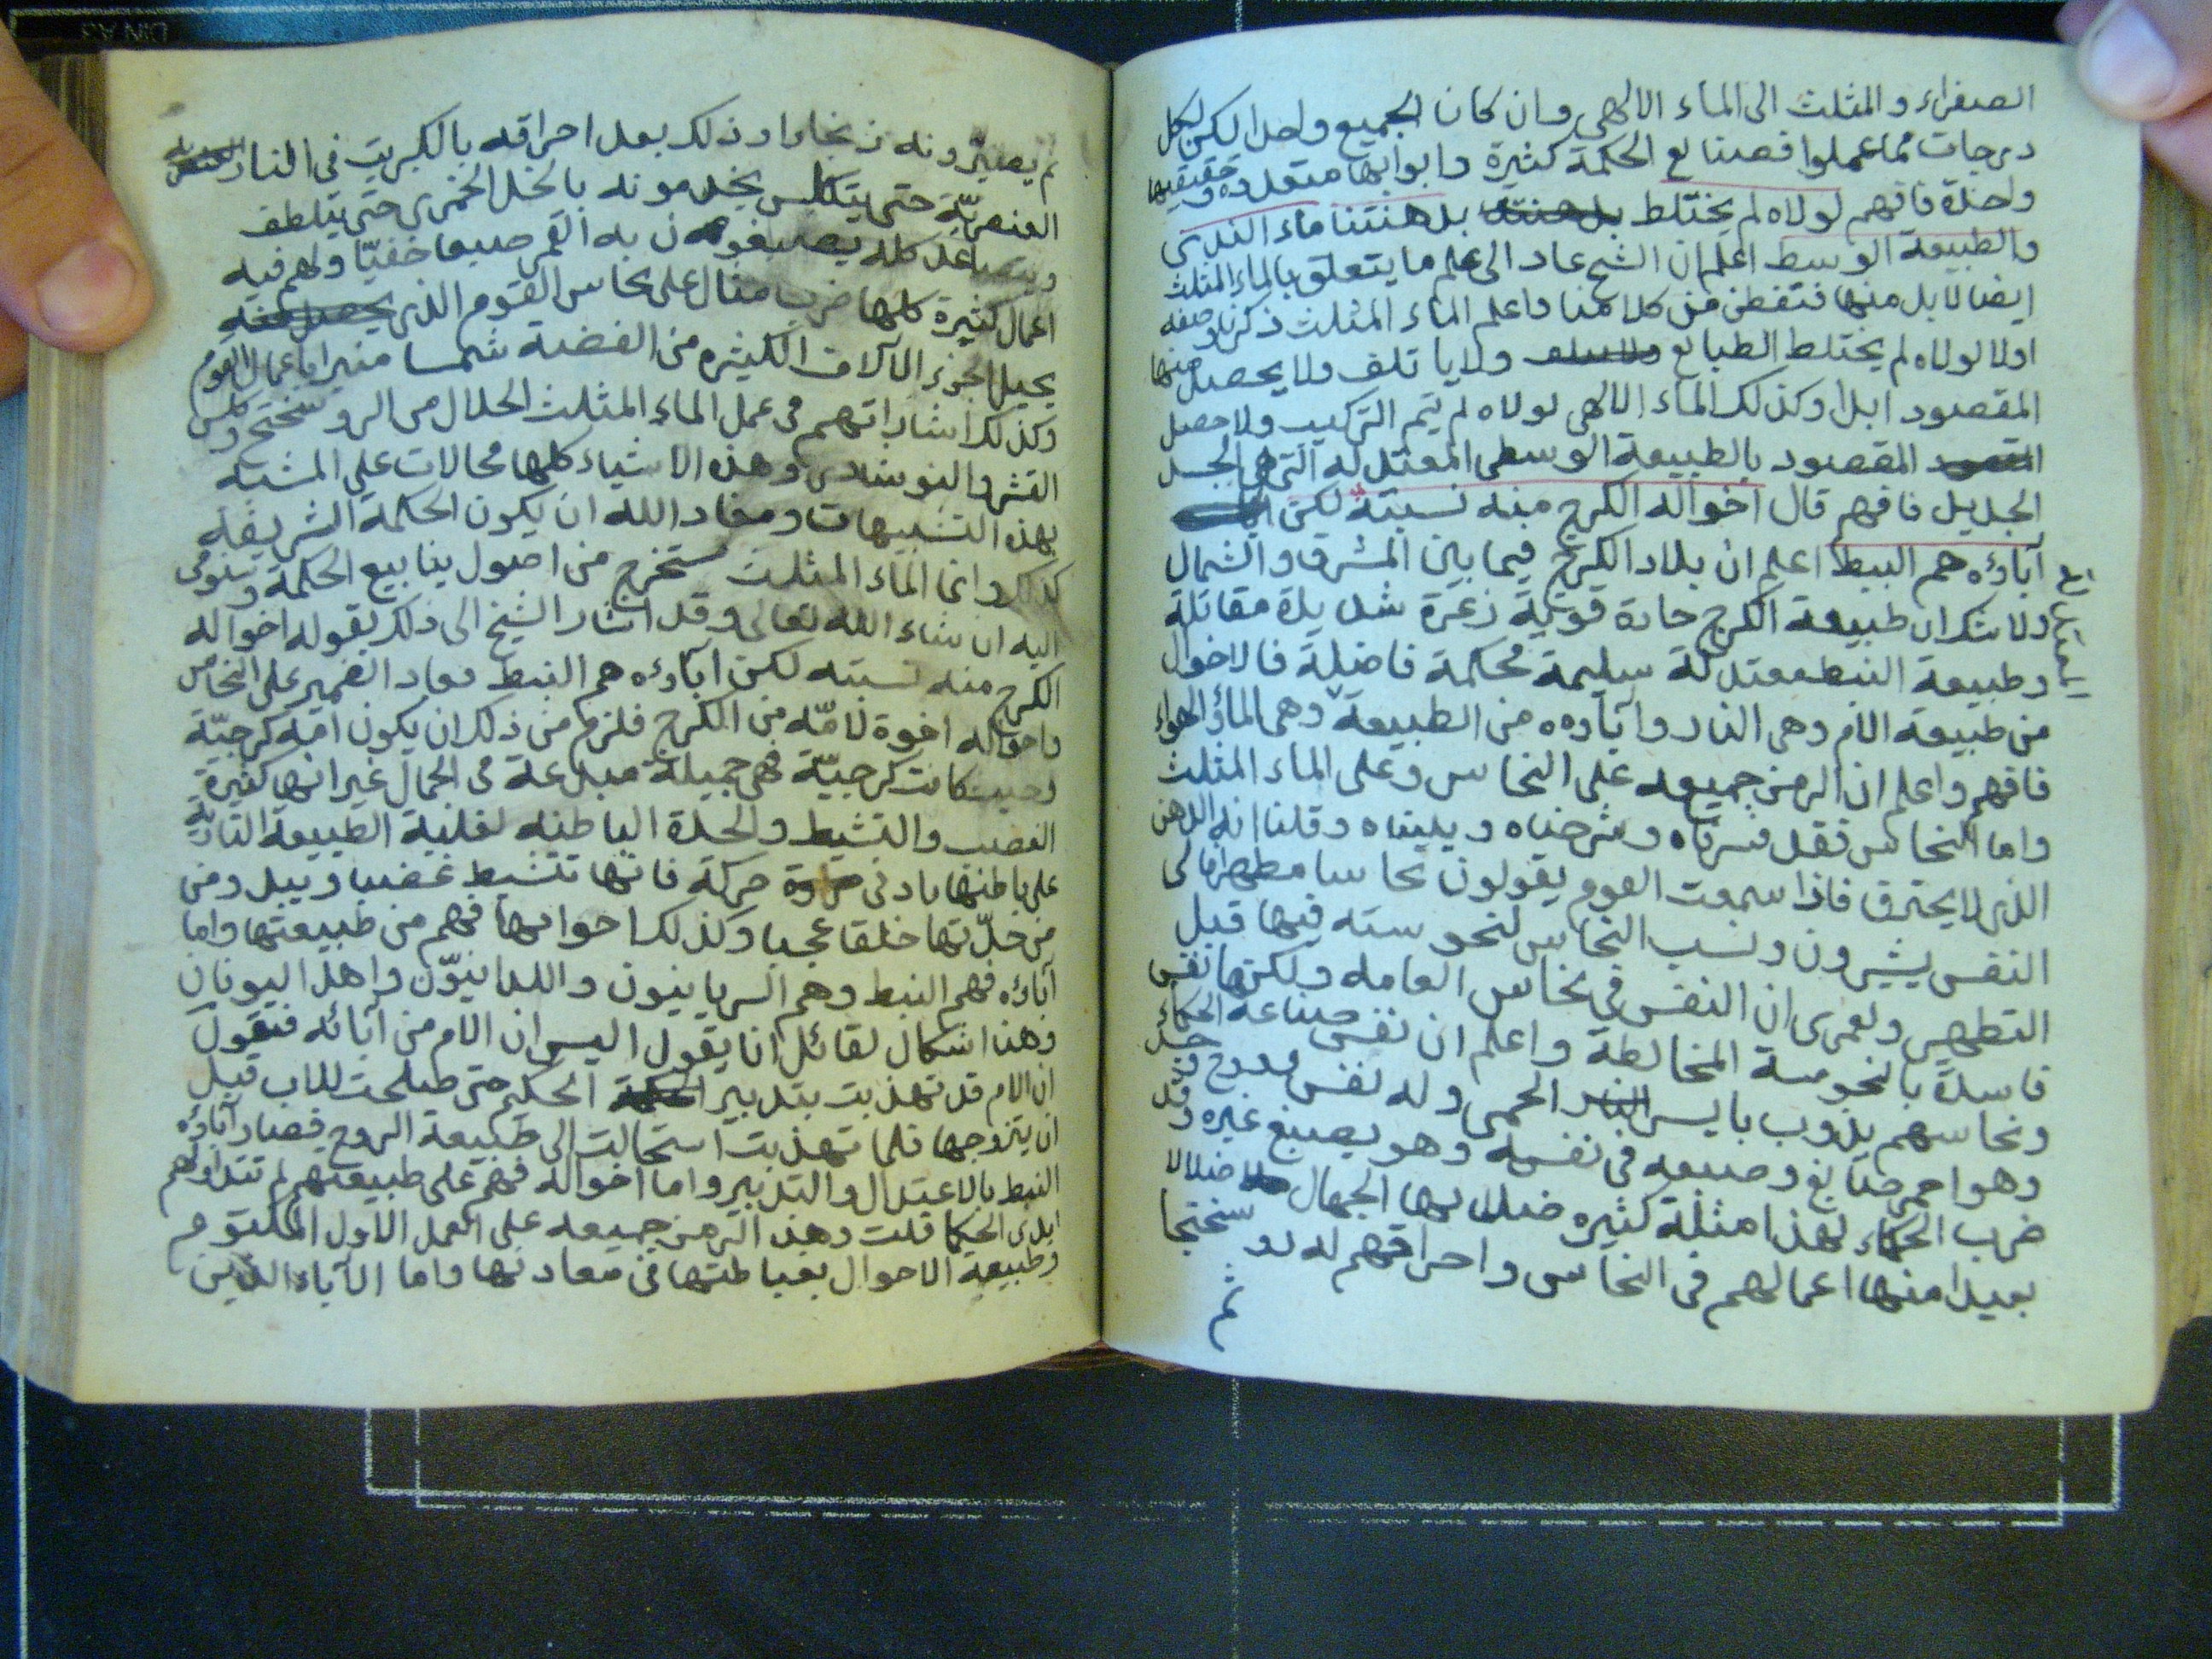 الصفراء و المثلث الى الماء الالهي وان كان الجميع واحدا لكن لكل
درجات مما عملوا فصنايع الحكمة كثيرة وابوابها متعددة وحقيقتها
واحدة فافهم لولاه لم يختلط بدهنتنا ماء الندى
والطبيعة الوسط اعلم ان الشيخ عاد الى علم ما يتعلق بالماء المثلث
ايضا لابد منها فتفطن من كلامنا واعلم الماء المثلث ذكرنا وصفه
اولا لولاه لم يختلط الطبايع ولا ياتلف ولا يحصل منها
المقصود ابدا وكذلك الماء الالهي لولاه لم يتم التركيب ولا حصل
المقصود بالطبيعة الوسطى المعتدله التي هي الجسد
الجديد فافهم قال اخواله الكرج منه نسبته لكن
آباؤه هم النبط اعلم ان بلاد الكرج فيما بين المشرق والشمال
ولا شك ان طبيعة الكرج حادة قوية زعرة شديدة مقاتلة
وطبيعة النبط معتدلة سليمة محكمة فاضلة فالاخوال
من طبيعة الام وهى النار وآباؤه من الطبيعة وهى الماء والهواء
فافهم واعلم ان الرمز جميعه على النحاس وعلى الماء المثلث
واما النحاس فقد فسرناه وشرحناه وبيناه وقلنا انه الدهن
الذى لا يحترق فاذا سمعت القوم يقولون نحاسا مطهرا فالى
النفس يشيرون ونسب النحاس لنحوسته فيها قبل
التطهير ولعمرى ان النفس فى نحاس العامه ولكنها نفس
فاسدة بالنحوسة المخالطة واعلم ان نفس صناعة الحكماء
ونحاسهم يذوب بايسر الحمى وله نفس وروح
وهو احمر صابغ وصبغه فى نفسه وهو يصبغ غيره وقد
ضرب الحكماء لهذا امثلة كثيره ضل بها الجهال ضلالا
بعيدا منها اعمالهم فى النحاس واحراقهم له روسختجا
ثم
ثم يصيرونه زنجارا وذلك بعد احراقه بالكبريت فى النار
العنصرية حتى يتكلس يخدمونه بالخل الخمرى حتى يتلطف
ويتصاعد كله يصبغون به القمر صبغا خفيا ولهم فيه
اعمال كثيرة كلها ضرب مثال على نحاس القوم الذى
يحيل الجزء الآلاف الكثيره من الفضة شمسا منيرا باعمال القوم
وكذلك اشاراتهم فى عمل الماء المثلث الحلال من الروسختج وكلس
القشر والنوشادر وهذه الاشياء كلها محالات على المشبه
بهذه التشبيهات ومعاد الله ان يكون الحكمة الشريفة
كذلك وانما الماء المثلث مستخرج من اصول ينابيع الحكمة وسنومى
اليه ان شاء الله تعالى وقد اشار الشيخ الى ذلك بقوله اخواله
الكرج منه نسبته لكن آباؤه هم النبط فعاد الضمير على النحاس
واخواله اخوة لامّه من الكرج فلزم من ذلك ان يكون امه كرجيّة
وحيث كانت كرجيّة فهى جميلة مبدعة فى الجمال غير انها كثيرة
الغضب والتشيط والحدة الباطنه لغلبة الطبيعة النارية
على باطنها بادنى حركة فانها تتشيط غضبا ويبدو من
من حدّتها خلقا عجبا وكذلك اخوالها فهم من طبيعتها واما
آباؤه فهم النبط وهم السريانيون والكلدانيوّن واهل اليونان
وهنا اشكال لقائل ان يقول اليس ان الام من آبائه فنقول
ان الام قد تهذبت بتدبير الحكيم حتى صلحت للاب قبل
ان يتزوجها فلما تهذبت استحالت الى طبيعة الروح فصار آباؤه
النبط بالاعتدال والتدبير واما اخواله فهم على طبيعتهم لم تتداولهم
ايدى الحكما قلت وهذا الرمز جميعه على العمل الاول المكتوم
وطبيعة الاخوال بغباطتها فى معادنها واما الآباء الذين